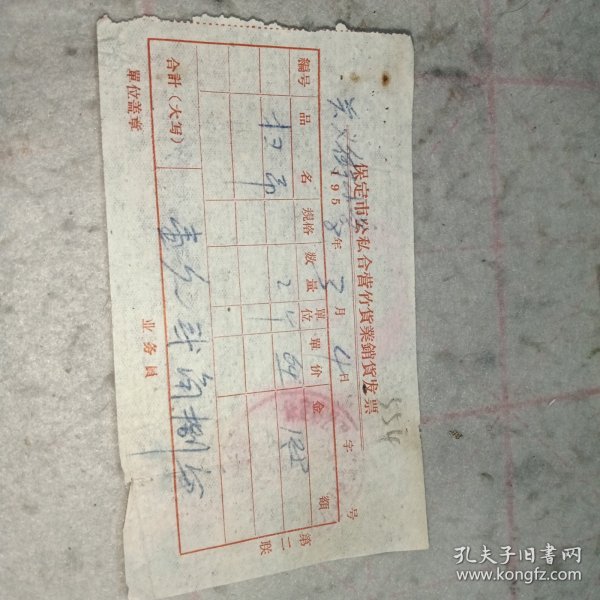 保定市公私合营竹貨業銷貨发票
1958年3月4日 字 号
編号 品名 規格 数量 單位 單价 金額
扫帚 2 64 128
合計（大写） 壹元貳角捌分
單位盖章 业务員
第二联
孔夫子旧书网
www.kongfz.com